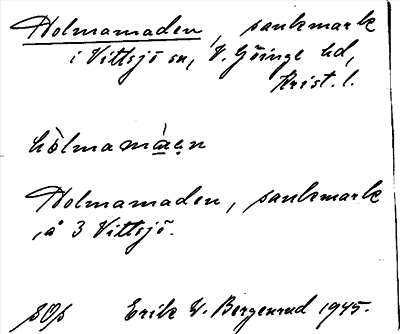 Holmamaden, sankmark
i Vittsjö sn, V. Göinge hd,
Krist. l.
hòlmamáen
Holmamaden, sankmark
å 3 Vittsjö.
Erik W. Bergenrud 1945.